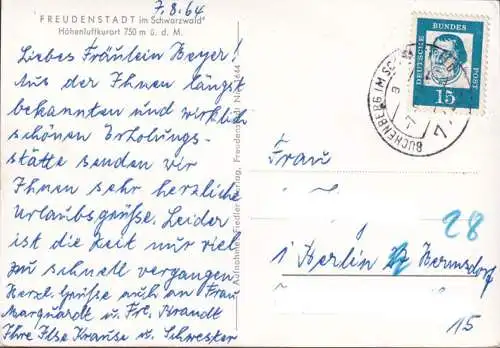 7.8.64
FREUDENSTADT im Schwarzwald
Höhenluftkurort 750 m ü. d. M.
Liebes Fräulein Beyer!
Aus der Ihnen längst
bekannten und wirklich
schönen Erholungs-
stätte senden wir
Ihnen sehr herzliche
Urlaubsgrüße. Leider
ist die Zeit nur viel
zu schnell vergangen.
Herzl. Grüße auch an Frau
Marquardt u. Frl. Brandt
Ihre Ilse Krause u. Schwester
Aufnahme: Fiedler Verlag, Freudenstadt
DEUTSCHE
BUNDES
POST
15
BUCHENBERG IM
Frau
28
1 Berlin
Hermsdorf
15